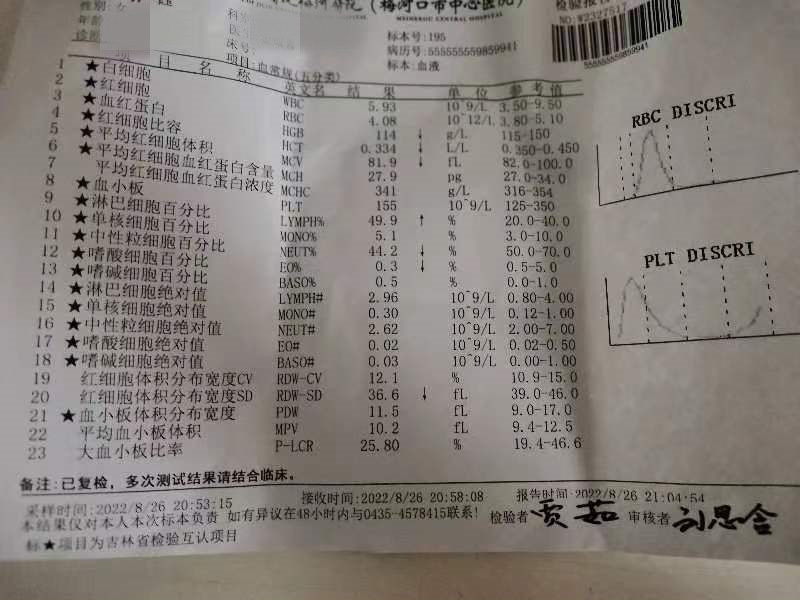 (梅河口市中心医院)
检验报告
性别:女
MEIHEKOU CENTRAL HOSPITAL
NO:W2327517
年龄
标本号: 195
诊断
病历号: 555555559859941
床号:
555555559859941
项目: 血常规(五分类)
标本: 血液
项 目 名 称 英文名 结 果 单 位 参 考 值
1 ★白细胞 WBC 5.93 10^9/L 3.50-9.50
2 ★红细胞 RBC 4.08 10^12/L 3.80-5.10
3 ★血红蛋白 HGB 114 ↓ g/L 115-150
4 ★红细胞比容 HCT 0.334 ↓ L/L 0.350-0.450
5 ★平均红细胞体积 MCV 81.9 ↓ fL 82.0-100.0
6 ★平均红细胞血红蛋白含量 MCH 27.9 pg 27.0-34.0
7 平均红细胞血红蛋白浓度 MCHC 341 g/L 316-354
8 ★血小板 PLT 155 10^9/L 125-350
9 ★淋巴细胞百分比 LYMPH% 49.9 ↑ % 20.0-40.0
10 ★单核细胞百分比 MONO% 5.1 % 3.0-10.0
11 ★中性粒细胞百分比 NEUT% 44.2 ↓ % 50.0-70.0
12 ★嗜酸细胞百分比 EO% 0.3 ↓ % 0.5-5.0
13 ★嗜碱细胞百分比 BASO% 0.5 % 0.0-1.0
14 ★淋巴细胞绝对值 LYMPH# 2.96 10^9/L 0.80-4.00
15 ★单核细胞绝对值 MONO# 0.30 10^9/L 0.12-1.00
16 ★中性粒细胞绝对值 NEUT# 2.62 10^9/L 2.00-7.00
17 ★嗜酸细胞绝对值 EO# 0.02 10^9/L 0.02-0.50
18 ★嗜碱细胞绝对值 BASO# 0.03 10^9/L 0.00-1.00
19 红细胞体积分布宽度CV RDW-CV 12.1 % 10.9-15.0
20 红细胞体积分布宽度SD RDW-SD 36.6 ↓ fL 39.0-46.0
21 ★血小板体积分布宽度 PDW 11.5 fL 9.0-17.0
22 平均血小板体积 MPV 10.2 fL 9.4-12.5
23 大血小板比率 P-LCR 25.80 % 19.4-46.6
RBC DISCRI
PLT DISCRI
备注: 已复检, 多次测试结果请结合临床。
采样时间:2022/8/26 20:53:15 接收时间:2022/8/26 20:58:08 报告时间:2022/8/26 21:04:54
本结果仅对本人本次标本负责 如有异议在48小时内与0435-4578415联系! 检验者 贾茹 审核者 刘思含
标★项目为吉林省检验互认项目